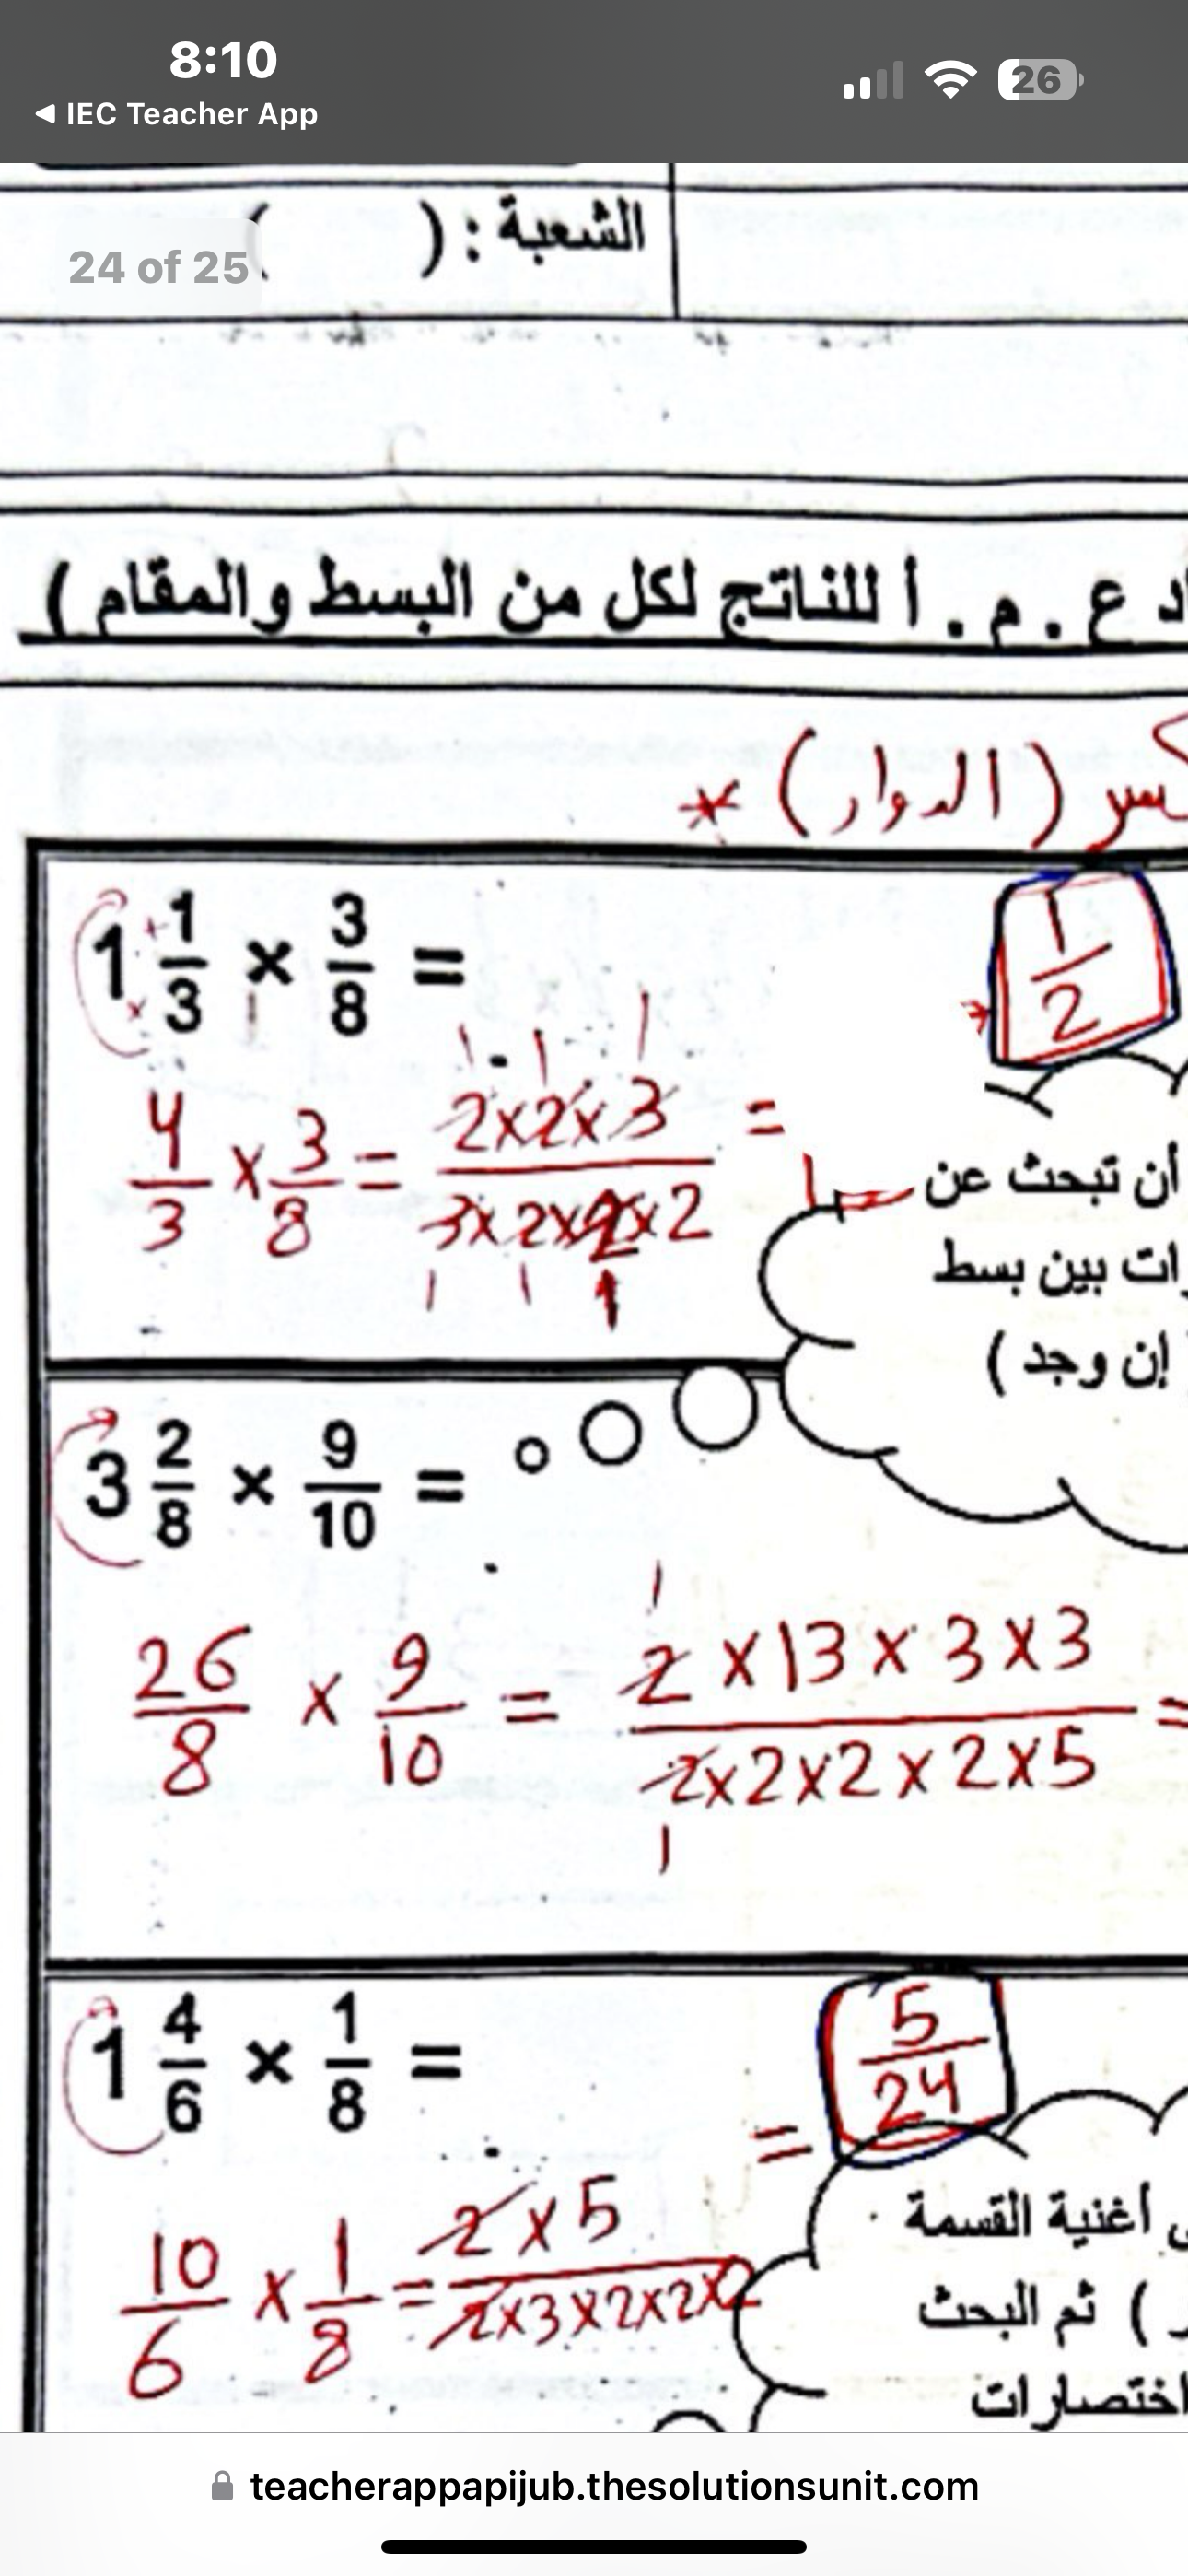 8:10
26
◀ IEC Teacher App
الشعبة : ( )
24 of 25
ع . م . أ للناتج لكل من البسط والمقام )
( الدوار ) *
1 1/3 × 3/8 =
4/3 × 3/8 = 2×2×3 / 3×2×2×2 =
1 1 1
1 1 1
1/2
أن تبحث عن
بين بسط
إن وجد )
3 2/8 × 9/10 =
26/8 × 9/10 = 2×13×3×3 / 2×2×2×2×5 =
1
1
1 4/6 × 1/8 =
10/6 × 1/8 = 2×5 / 2×3×2×2×2
= 5/24
أغنية القسمة
) ثم البحث
اختصارات
teacherappapijub.thesolutionsunit.com